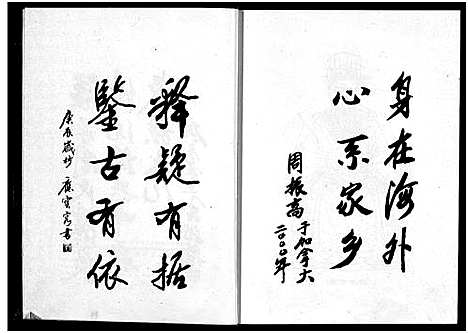 身在海外
心系家乡
周振高
于加拿大
二〇〇〇年
释疑有据
鉴古有依
庚辰岁抄